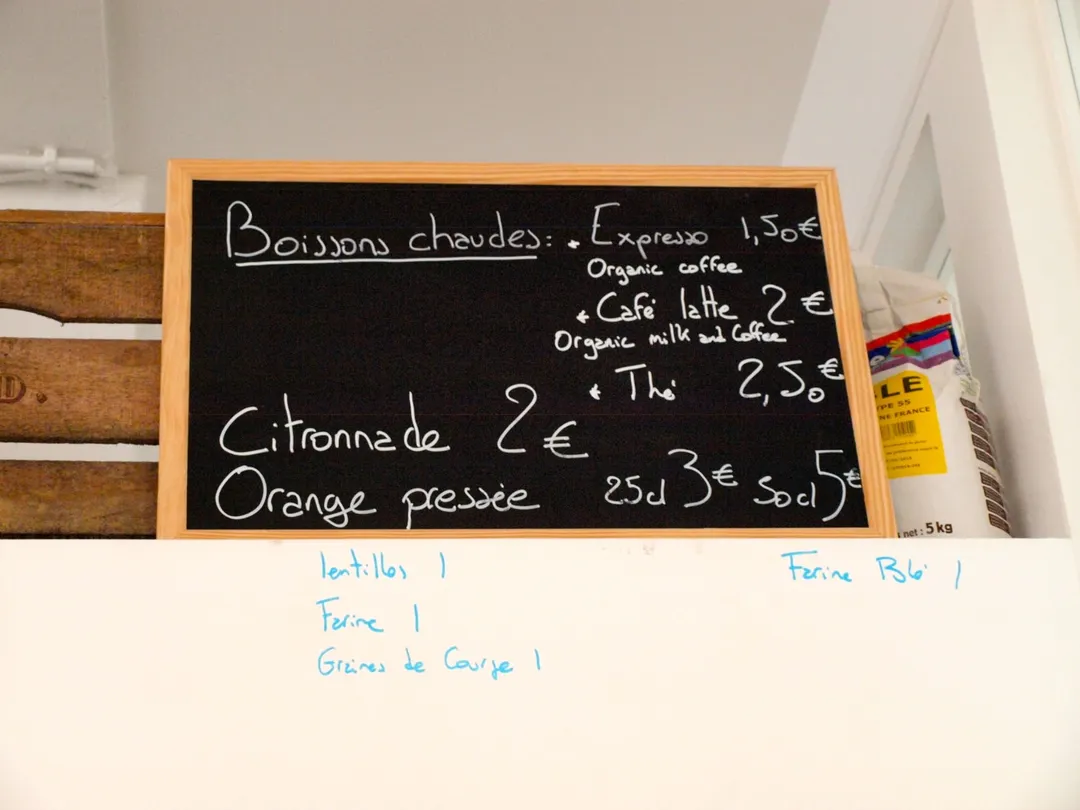 Boissons chaudes: * Expresso 1,50€
Organic coffee
* Café latte 2€
Organic milk and Coffee
* Thé 2,50€
Citronnade 2€
Orange pressée 25cl 3€ 50cl 5€
D.
LE
TYPE 55
NE FRANCE
net: 5 kg
lentilles 1
Farine 1
Graines de Courge 1
Farine Blé 1